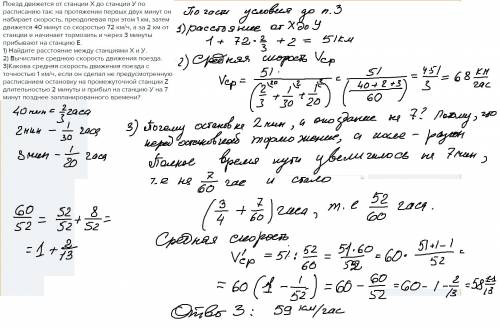 Поезд движется от станции X до станции У по
расписанию так: на протяжении первых двух минут он
набирает скорость, преодолевая при этом 1 км, затем
движется 40 минут со скоростью 72 км/ч, а за 2 км от
станции и начинает тормозить и через 3 минуты
прибывают на станцию E.
1) Найдите расстояние между станциями X и У.
2) Вычислите среднюю скорость движения поезда.
3)Какова средняя скорость движения поезда с
точностью 1 км/ч, если он сделал не предусмотренную
расписанием остановку на промежуточной станции Z
длительностью 2 минуты и прибыл на станцию У на 7
минут позднее запланированного времени?
40 мин = 2/3 часа
2 мин – 1/30 часа
3 мин – 1/20 часа
60/52 = 52/52 + 8/52 =
= 1 + 2/13
Писали условия до п. 3
1) расстояние от X до У
1 + 72 · 2/3 + 2 = 51 км
2) Средняя скорость Vср
Vср = 51 · / (2/3 + 1/30 + 1/20) = 51 / ((40 + 2 + 3)/60) = 4·51/3 = 68 км/час
3) Почему остановка 2 мин, а опоздание на 7? Потому, что
перед остановкой торможение, а после – разгон
Полное время пути увеличилось на 7 мин,
т.е на 7/60 час и стало
(3/4 + 7/60) часа, т.е 52/60 часа.
Средняя скорость
V'ср = 51 : 52/60 = 51·60/52 = 60 · (51+1–1)/52 =
= 60 (1 – 1/52) = 60 – 60/52 = 60 – 1 – 2/13 = 58 11/13
Ответ 3: 59 км/час